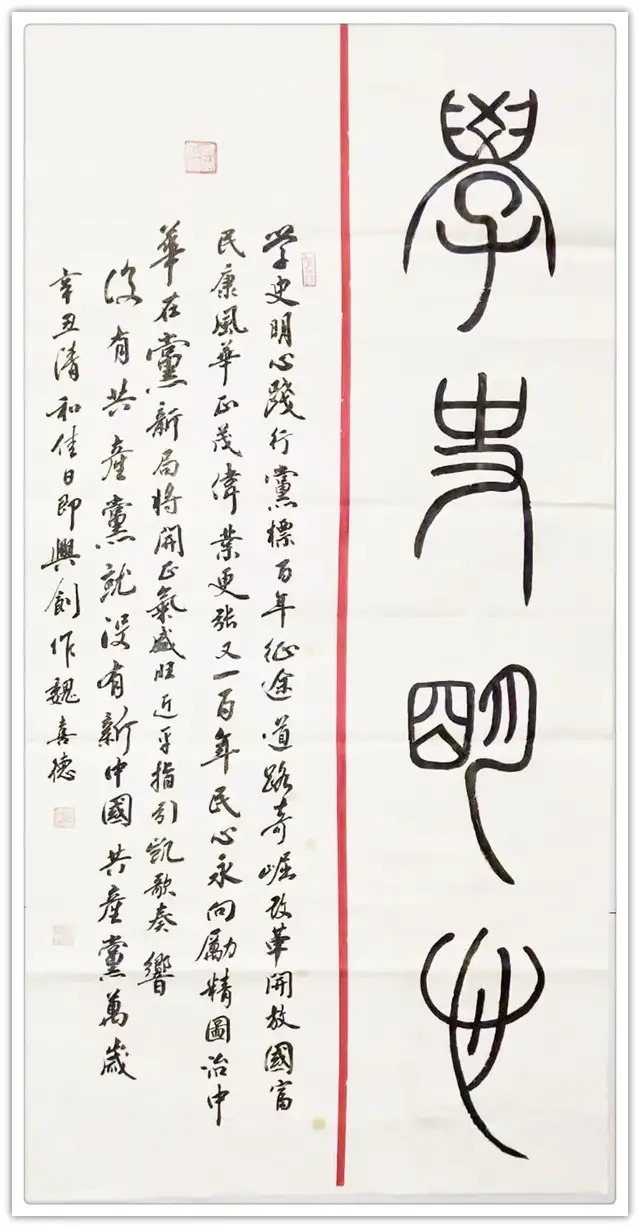 學史明心
学史明心踐行黨標百年征途道路奇崛改革開放國富
民康風華正茂偉業更張又一百年民心永向勵精圖治中
華在黨新局将開正氣盛旺近平指引凱歌奏響
没有共產黨就没有新中國共產黨萬歲
辛丑清和佳日即興創作魏喜德